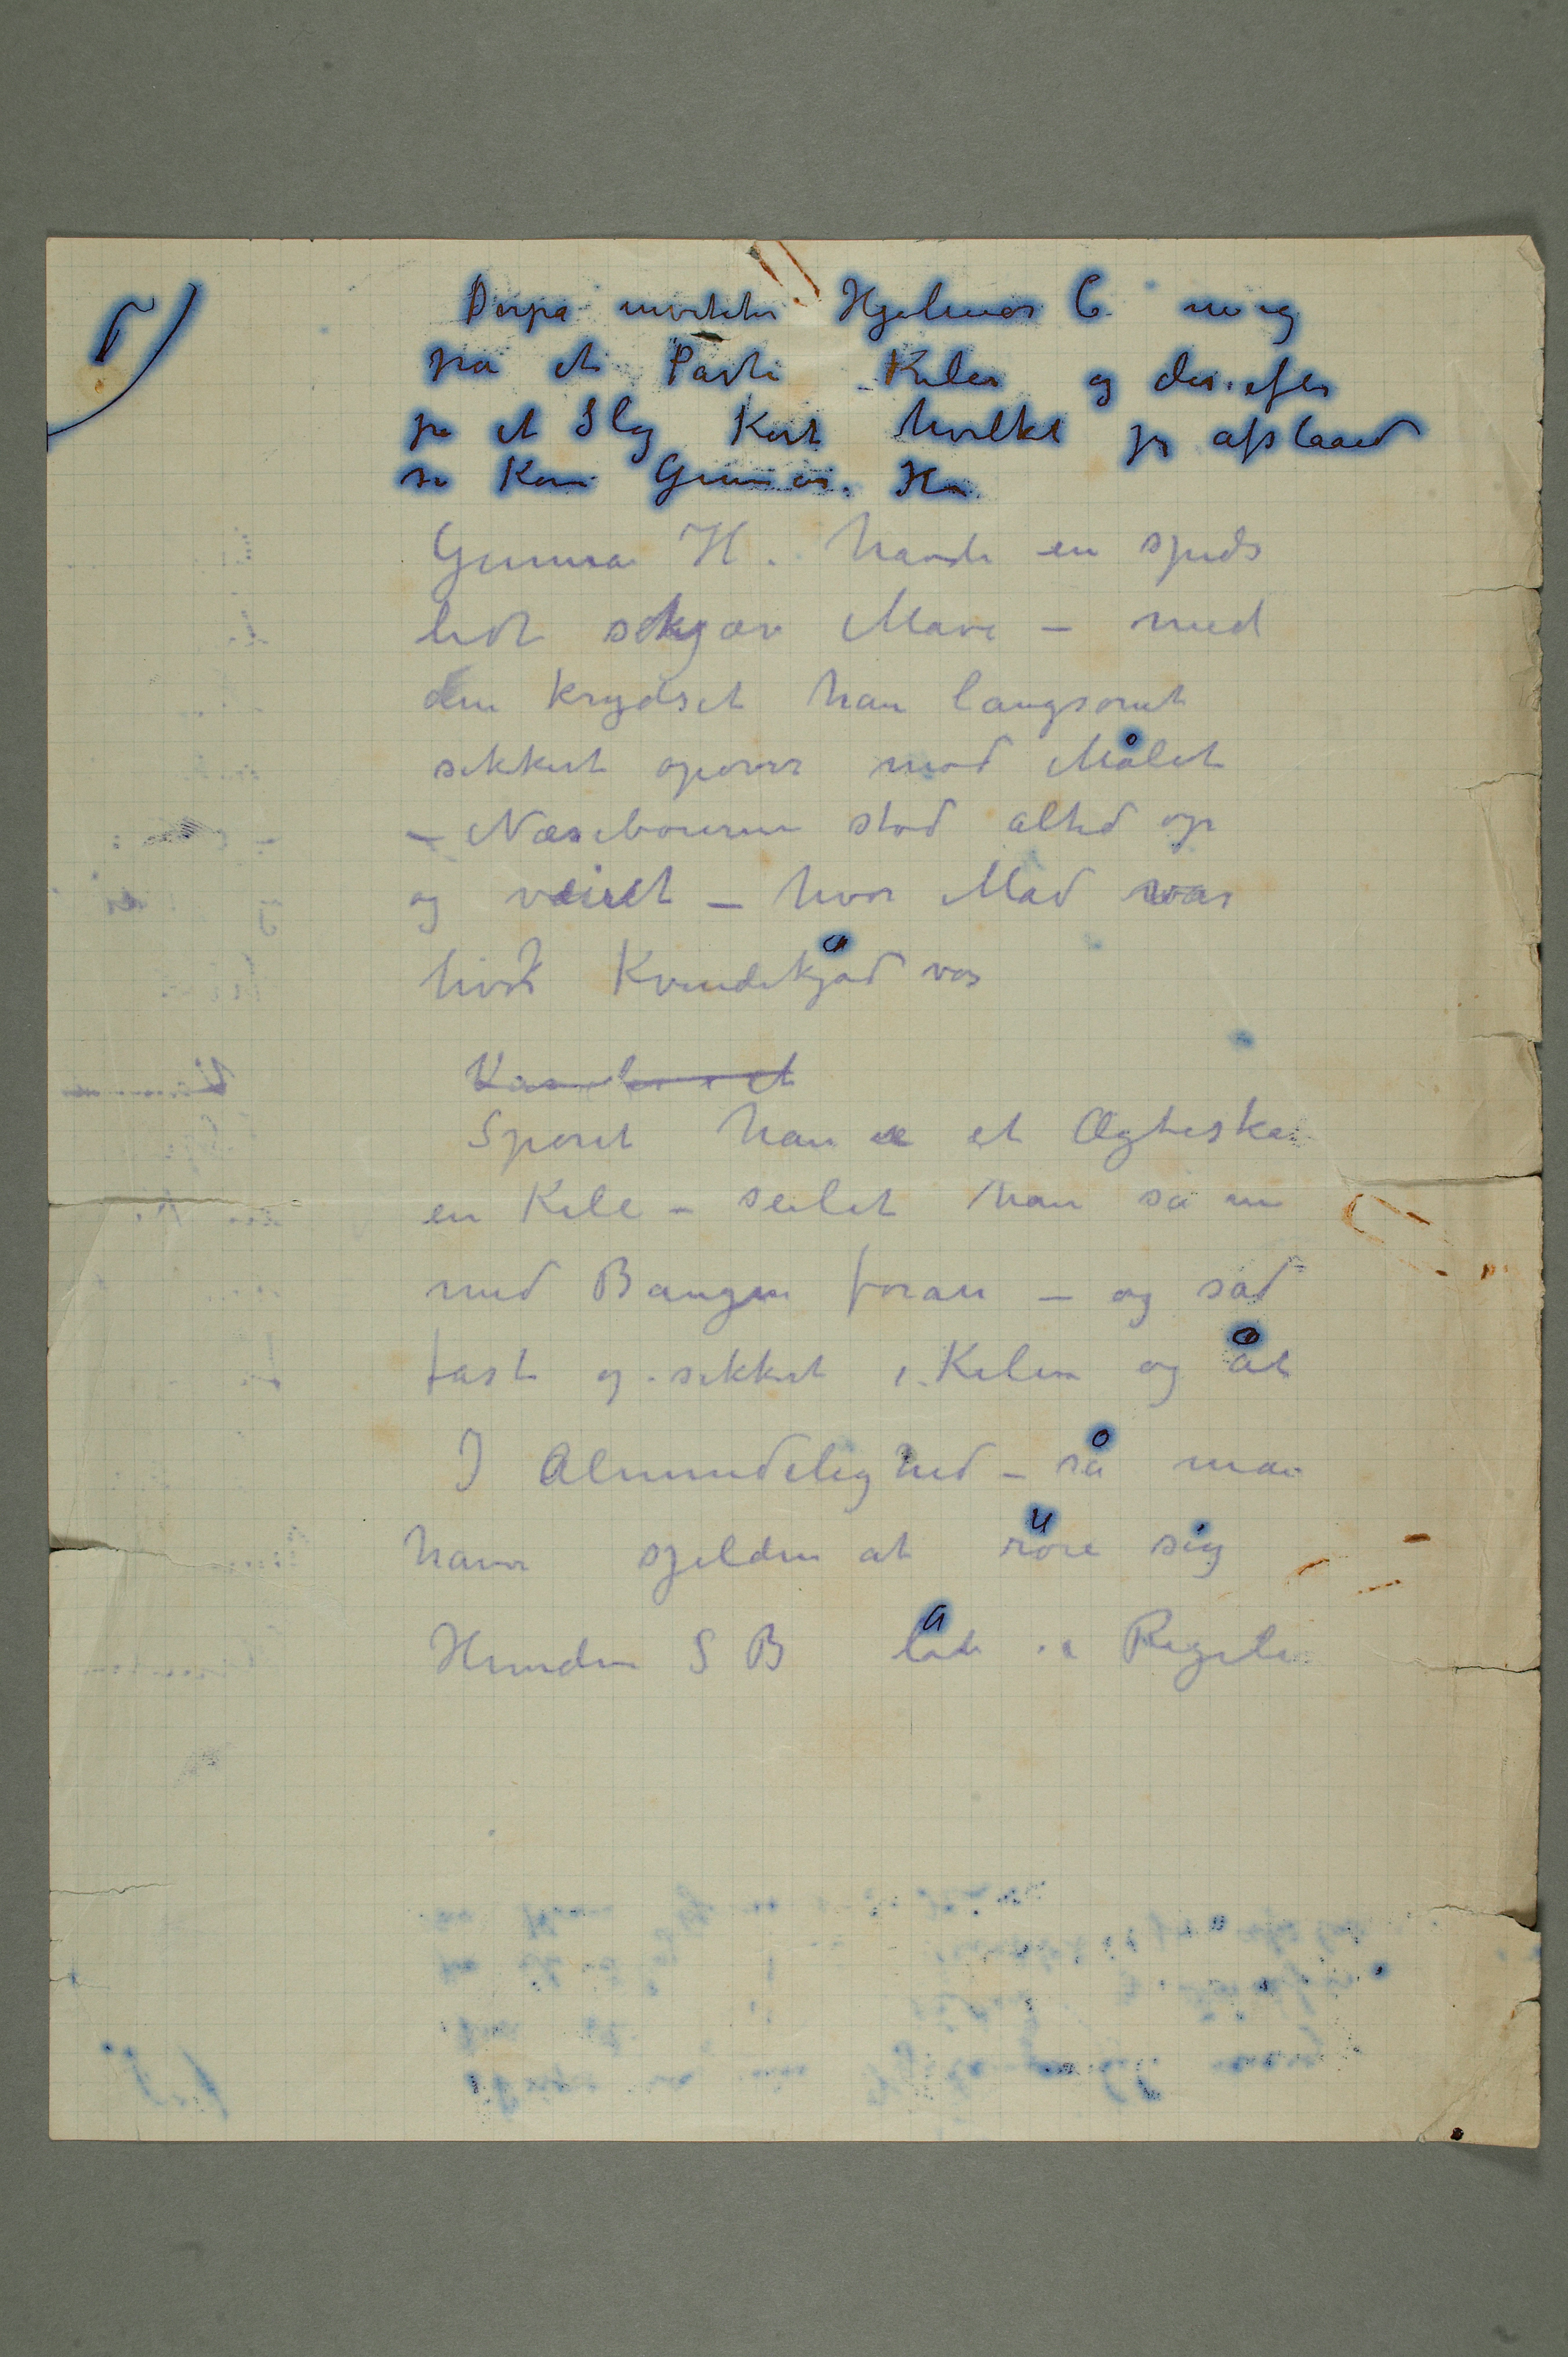 Derpå inviteter Hjelmar C. meig
på et Parti Kiler og derefter
på et Slag Kort hvilket jeg afslaaed
så kom Gunnar. H.
Gunnar H. havde en spids
lidt skjæv Mave – med
den krydset han langsomt
sikkert opover mod Målet
– Næseborerne stod altid op
og veiret – hvor Mad var
hvor Kvindekjød var
Sporet han et Ægteska
en Kile – seilet han så in
med Baugen foran – og sad
fast og sikkert i Kilen og åt
I Almindelighed – så man
ham sjelden at røre sig
Hunden S B låt i Regelen